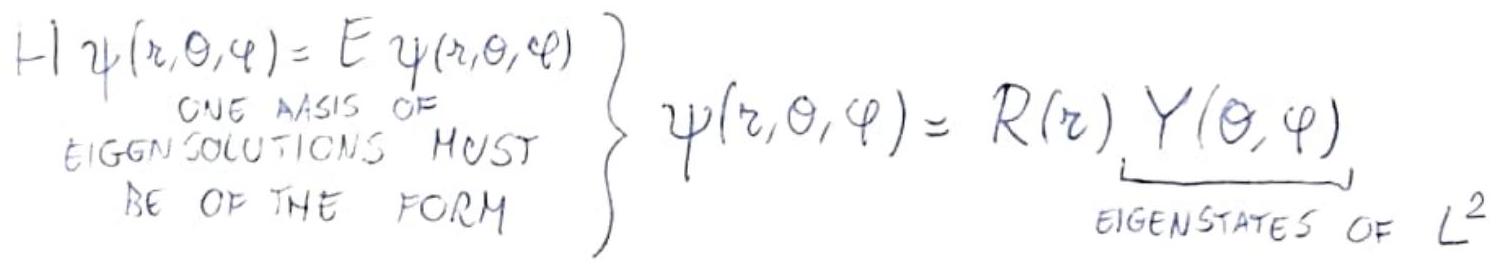 H ψ(r,θ,φ) = E ψ(r,θ,φ)
ONE BASIS OF
EIGENSOLUTIONS MUST
BE OF THE FORM
ψ(r,θ,φ) = R(r) Y(θ,φ)
EIGENSTATES OF L²